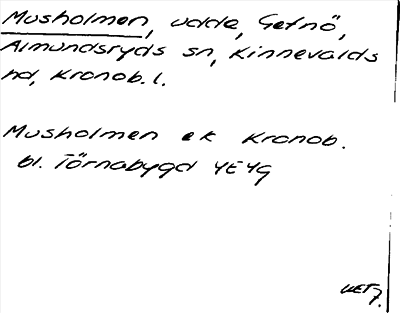 Musholmen, udde, Getnö,
Almundsryds sn, Kinnevalds
hd, Kronob. l.
Musholmen ek Kronob.
bl. Törnabygd 4E4g